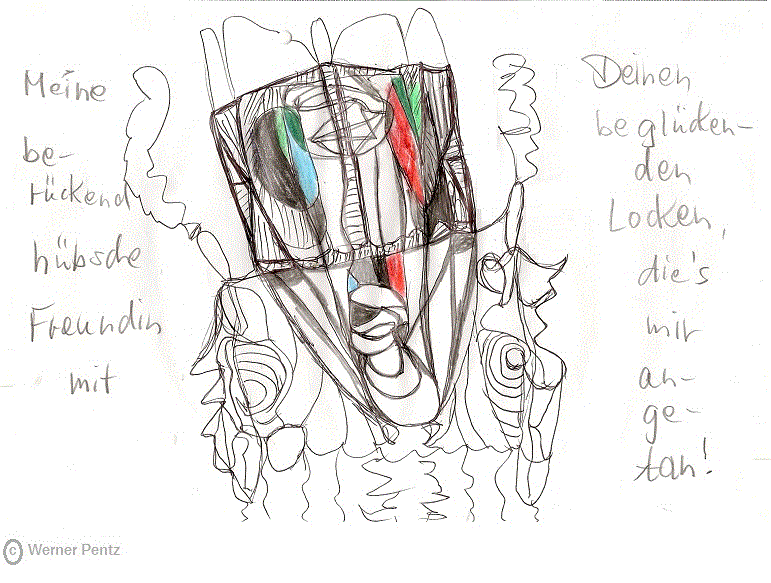 Meine
be-
rückend
hübsche
Freundin
mit
Deinen
beglücken-
den
Locken,
die's
mir
an-
ge-
tan!
© Werner Pentz